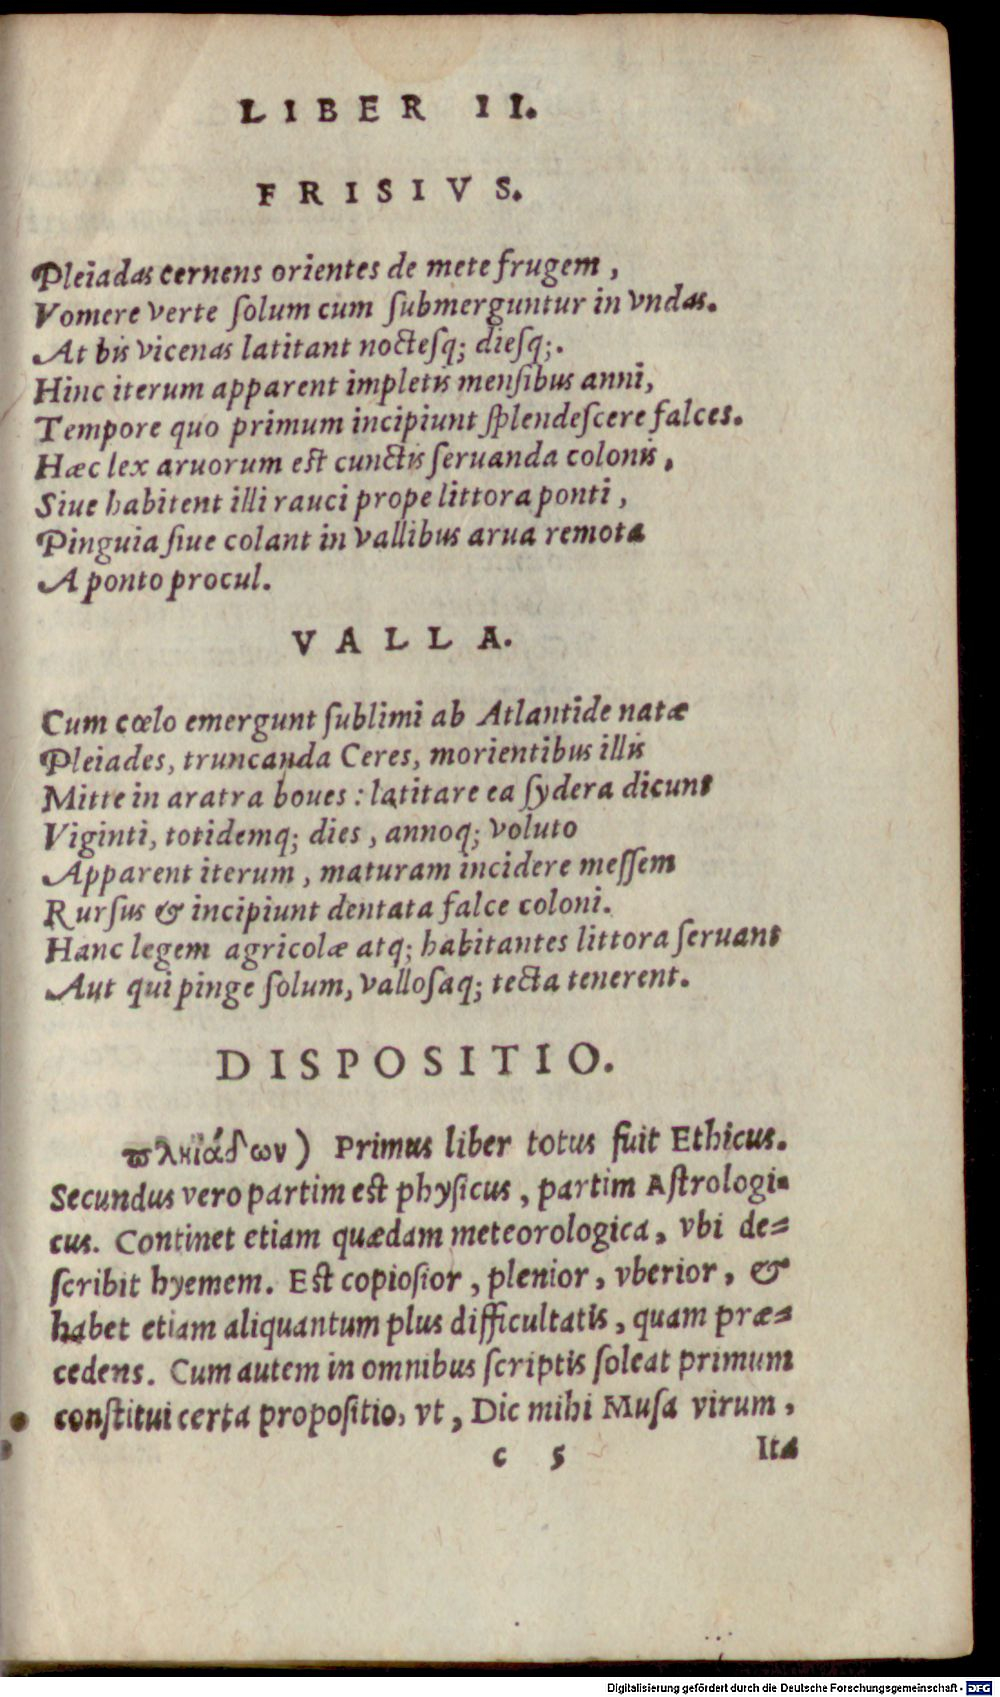 LIBER II.
FRISIVS.
Pleiadas cernens orientes de mete frugem,
Vomere verte ſolum cum ſubmerguntur in vndas.
At bis vicenas latitant noctesq; diesq;.
Hinc iterum apparent impletis menſibus anni,
Tempore quo primum incipiunt ſplendeſcere falces.
Hæc lex aruorum est cunctis ſeruanda colonis,
Siue habitent illi rauci prope littora ponti,
Pinguia ſiue colant in vallibus arua remota
A ponto procul.
VALLA.
Cum cœlo emergunt ſublimi ab Atlantide natæ
Pleiades, truncanda Ceres, morientibus illis
Mitte in aratra boues: latitare ea ſydera dicunt
Viginti, totidemq; dies, annoq; voluto
Apparent iterum, maturam incidere meſſem
Rurſus & incipiunt dentata falce coloni.
Hanc legem agricolæ atq; habitantes littora ſeruant
Aut qui pinge ſolum, valloſaq; tecta tenerent.
DISPOSITIO.
πληϊάδων) Primus liber totus fuit Ethicus.
Secundus vero partim est phyſicus, partim Aſtrologi-
cus. Continet etiam quædam meteorologica, vbi de-
ſcribit hyemem. Est copioſior, plenior, vberior, &
habet etiam aliquantum plus difficultatis, quam præ-
cedens. Cum autem in omnibus ſcriptis ſoleat primum
conſtitui certa propoſitio, vt, Dic mihi Muſa virum,
c 5 Ita
Digitalisierung gefördert durch die Deutsche Forschungsgemeinschaft - DFG